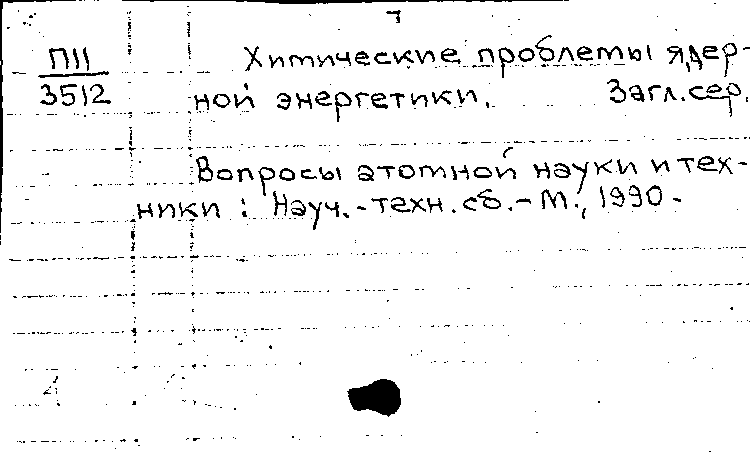 П11
3512
Химические проблемы ядер-
ной энергетики. Загл. сер.
Вопросы атомной науки и тех-
ники : Науч.-техн. сб. – М., 1990 -